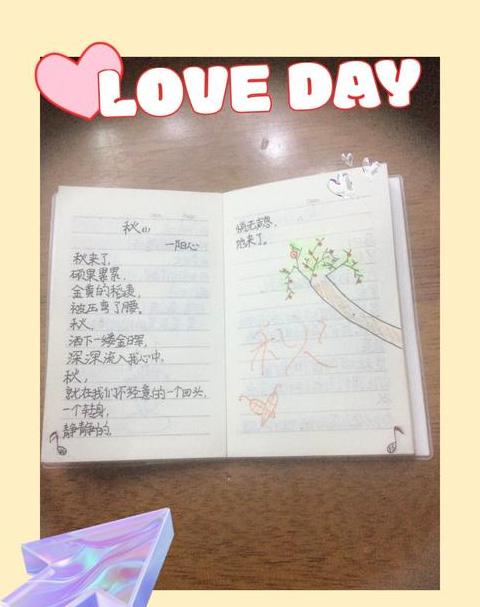 LOVE DAY
秋
秋来了,
硕果累累,
金黄的稻穗,
被压弯了腰。
秋,
洒下一缕金晖,
深深流入我心中,
秋,
就在我们不经意的一个回头,
一个转身,
静静的,
悄无声息,
地来了。
秋